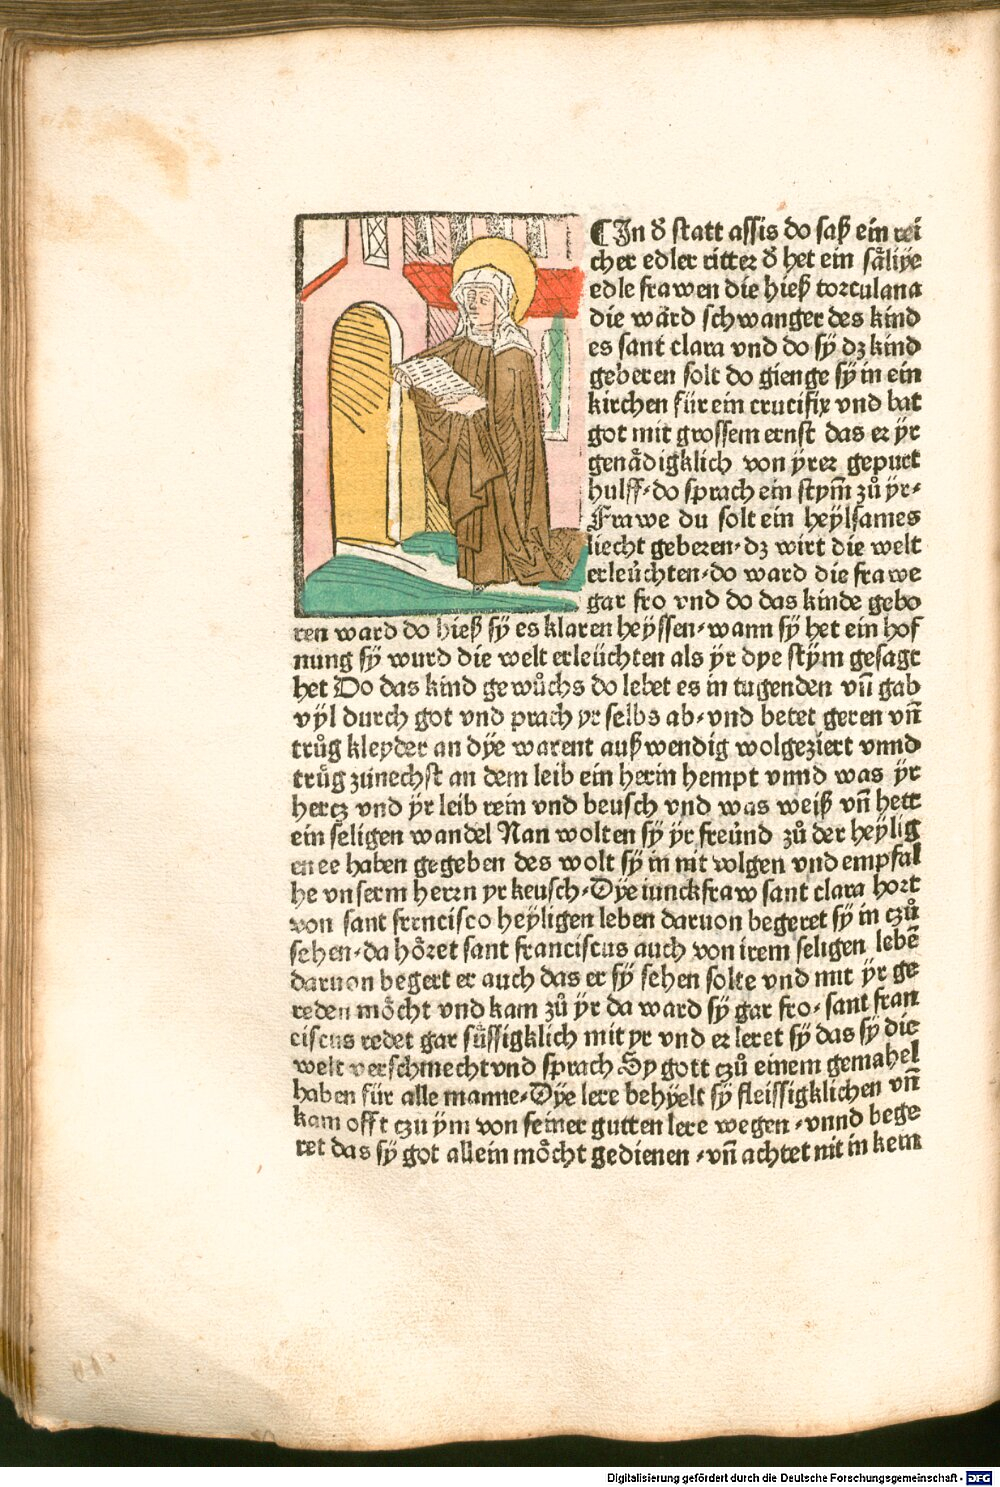 ¶In d᷎ statt assis do saß ein rei
cher edler ritter d᷎ het ein sålige
edle frawen die hieß torculana
die wård schwanger des kind
es sant clara vnd do sÿ dz kind
geberen solt do gienge sÿ in ein
kirchen für ein crucifix vnd bat
got mit grossem ernst das er ÿr
genådigklich von ÿrer gepurt
hulff⸗do sprach ein stym̄ zů ÿr⸗
Frawe du solt ein heÿlsames
liecht geberen⸗dz wirt die welt
erleůchten⸗do ward die frawe
gar fro vnd do das kinde gebo
ren ward do hieß sÿ es klaren heÿssen⸗wann sÿ het ein hof
nung sÿ wurd die welt erleüchten als ÿr dye stÿm gesagt
het Do das kind gewůchs do lebet es in tugenden vn̄ gab
vÿl durch got vnd prach yr selbs ab⸗vnd betet geren vn̄
trůg kleyder an dÿe warent außwendig wolgeziert vnnd
trůg zunechst an dem leib ein herin hempt vnnd was ÿr
hercz vnd ÿr leib rein vnd beusch vnd was weiß vn̄ hett
ein seligen wandel Nan wolten sÿ ÿr freůnd zů der heÿlig
en ee haben gegeben des wolt sÿ in nit volgen vnd empfal
he vnserm herrn yr keusch⸗Dÿe iunckfraw sant clara hort
von sant frencisco heÿligen leben daruon begeret sÿ in czů
sehen⸗da hôret sant franciscus auch von irem seligen lebē
daruon begert er auch das er sÿ sehen solte vnd mit ÿr ge
reden môcht vnd kam zů ÿr da ward sÿ gar fro⸗sant fran
ciscus redet gar sůssigklich mit yr vnd er leret sÿ das sÿ die
welt verschmecht vnd sprach Sy gott czů einem gemahel
haben für alle manne⸗Dÿe lere behÿelt sÿ fleissigklichen vn̄
kam offt czu ÿm von seiner gutten lere wegen⸗vnnd bege
ret das sÿ got allein môcht gedienen⸗vn̄ achtet nit in kein
Digitalisierung gefördert durch die Deutsche Forschungsgemeinschaft - DFG